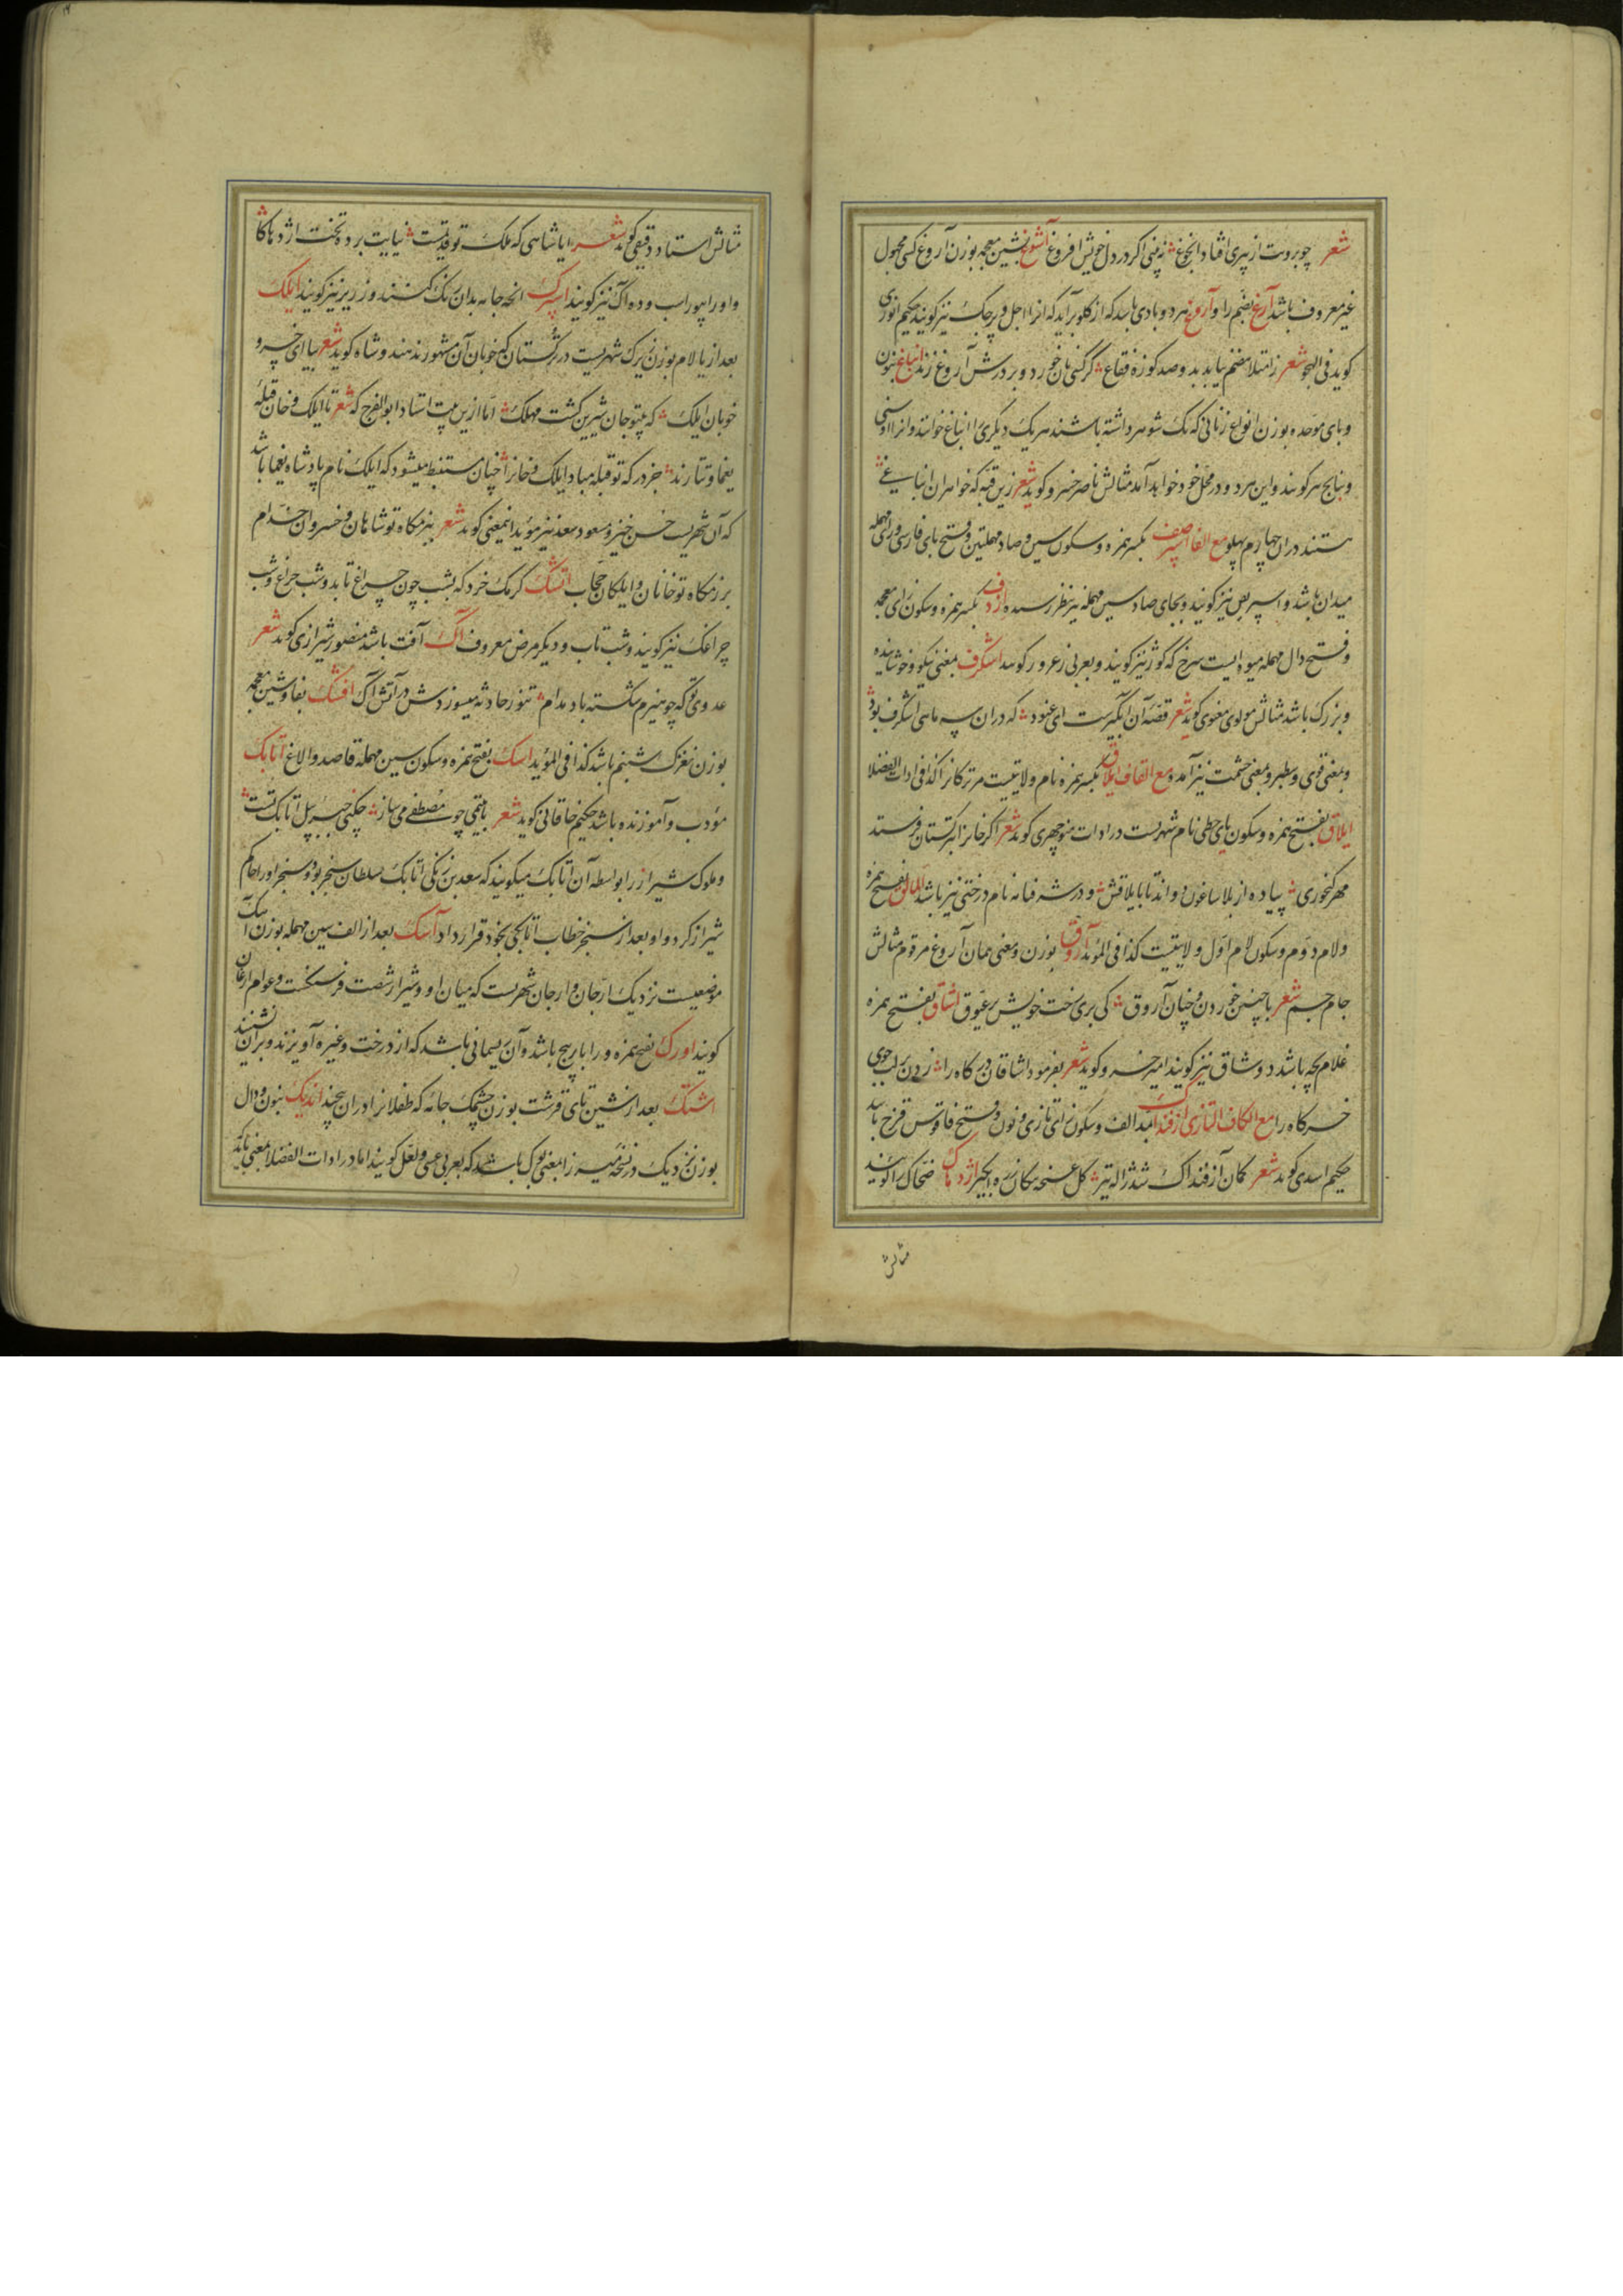 شعر چو بروت از پیری افتاد انجوغ نه پنی اکر در دل خویش افروغ آشوغ بشین معجمه بوزن آروغ کسی مجهول
غیر معروف باشد آرغ بضم را و آروغ هر دو بادی باشد که از کلو برآید که آنرا اجل و رجک نیز کویند حکیم انوری
کوید فی الهجو شعر ز امتلا هضم نیابد بدو صد کوزه فقاع کر کسی نان خورد و بر درش آروغ زند انباغ بنون
و بای موحده بوزن انواع زنانی که یک شوهر داشته باشند هر یک دیکری را انباغ خوانند و آنرا اوسنی
و بنانج هر کویند و این هر دو در محل خود خواهد آمد مثالش ناصر خسرو کوید شعر زین قبه که خواهران انباغی
هستند دران چهارم پهلو مع الفا اسپرصف بکسر همزه و سکون سین و صاد مهملتین و فتح بای فارسی و رای مهمله
میدان باشد و اسپریص نیز کویند و بجای صاد سین مهمله نیز بنظر رسیده ازدف بکسر همزه و سکون زای معجمه
و فتح دال مهمله میوه ایست سرخ که کوژ نیز کویند و بعربی زعرور کویند اشکرف بمعنی نیکو و خوش آینده
و بزرک باشد مثالش مولوی معنوی کوید شعر قصه آن آبکیرست ای عنود که دران سه ماهی اشکرف بود
و بمعنی قوی و سطبر و بمعنی حشمت نیز آمده مع القاف ایلاق بکسر همزه نام ولایتیست مر ترکانرا کذا فی ادات الفضلا
ایلاق بفتح همزه و سکون یای حطی نام شهریست در ادات منوچهری کوید شعر اکر خانرا بترکستان فرستد
مهر کنجوری پیاده از بلاساغون دواند تا بایلاقش و در شرفنامه نام درختی نیز باشد المالق بفتح همزه
و لام دوم و سکون لام اول ولایتیست کذا فی المؤید آروق بوزن و معنی همان آروغ مرقوم مثالش
جام جم شعر با چنین خوردن و چنان آروق کی بری رخت خویش بر عیوق اشاق بفتح همزه
غلام بچه باشد و وشاق نیز کویند امیر خسرو کوید شعر بفرمود اشاقان درکاه را زدن بر لب جوی
خرکاه را مع الکاف التازی آزفنداک بمد الف و سکون زای تازی و نون و فتح فا قوس قزح باشد
حکیم اسدی کوید شعر کمان آزفنداک شد ژاله تیر کل غنچه پیکان زره آبکیر اژدهاک ضحاک را کویند
مثالش
مثالش استاد دقیقی کوید شعر ایا شاهی که ملک تو قدیمست نیایت برده تخت از اژدهاکا
و او را بیوراسب و ده آک نیز کویند اسپرک آنچه جامه بدان رنک کنند و زریر نیز کویند ایلک
بعد از یا لام بوزن زیرک شهریست در ترکستان که خوبان آن مشهورند هندوشاه کوید شعر بیا ای خسرو
خوبان ایلک که بیتو جان شیرین کشت مهلک اما ازین بیت استاد ابو الفرج که شعر تا ایلک و خان قبله
یغما و تتارند جز درکه تو قبله مباد ایلک و خانرا چنان مستنبط میشود که ایلک نام پادشاه یغما باشد
که آن شهریست حسن خیز و مسعود سعد نیز مؤید اینمعنی کوید شعر ببزمکاه تو شاهان و خسروان خدام
برزمکاه تو خانان و ایلکان حجاب اتشک کرمک خرد که بشب چون چراغ تابد و شب چراغ و شب
چراغک نیز کویند و شب تاب و دیکر مرض معروف آک آفت باشد منصور شیرازی کوید شعر
عدوی تو که چو هیزم شکسته باد مدام تنور حادثه میسوزدش در آتش آک افشک بفا و شین معجمه
بوزن نغزک شبنم باشد کذا فی المؤید اسک بفتح همزه و سکون سین مهمله قاصد و الاغ اتابک
مؤدب و آموزنده باشد حکیم خاقانی کوید شعر با یتیمی چو مصطفی می ساز چکنی جبرئیل اتابک تست
و ملوک شیراز را بواسطه آن اتابک میکویند که سعد بن زنکی اتابک سلطان سنجر بود و سنجر او را حاکم
شیراز کرد و او بعد از سنجر خطاب اتابکی بخود قرار داد آسک بعد از الف سین مهمله بوزن آهک
موضعیست نزدیک ارجان و ارجان شهریست که میان او و شیراز شصت فرسنکست و عوام ارغان
کویند اورک بفتح همزه و را باریج باشد و آن ریسمانی باشد که از درخت و غیره آویزند و بران نشینند
اشتک بعد از شین تای قرشت بوزن چشمک جامه که طفلانرا دران پیچند اندیک بنون و دال
بوزن نزدیک در نسخه میرزا بمعنی بوک باشد که بعربی عسی و لعل کویند اما در ادات الفضلا بمعنی باید که